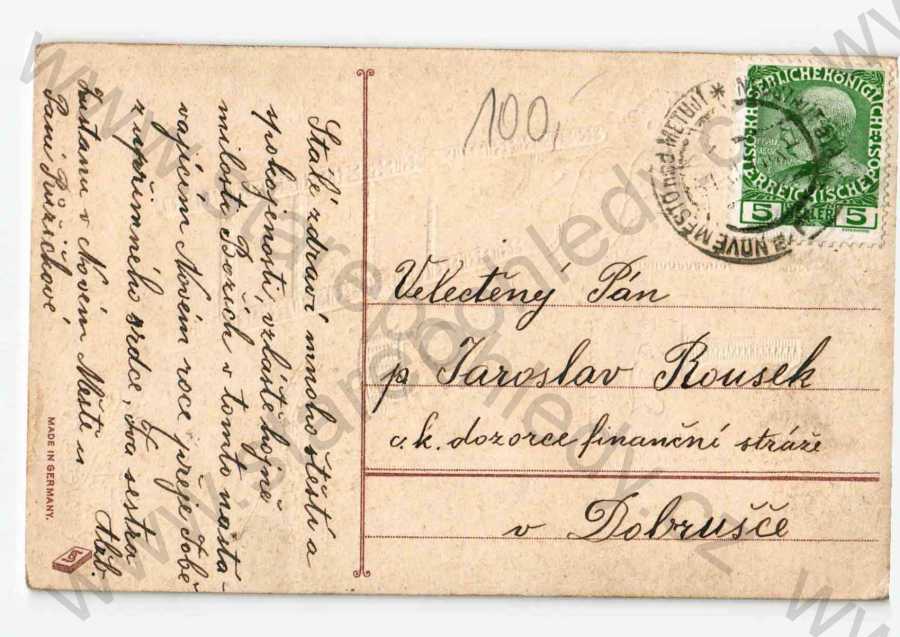 Stálé zdraví mnoho štěstí a
spokojenosti, vzláště hojně
milosti Božích v tomto nasta-
vajícím Novém roce přeje Tobě
z upřímného srdce, Tva sestra
Zustanu v Novém Městě u
Paní Jiřičkové
100,
NOVÉ MĚSTO nad METUJÍ *
KAISERLICHE KÖNIGLICHE
ÖSTERREICHISCHE POST
5 HELLER 5
Velectěný Pán
p Jaroslav Rousek
c. k. dozorce finanční stráže
v Dobrušce
MADE IN GERMANY.
www.starepohledy.cz